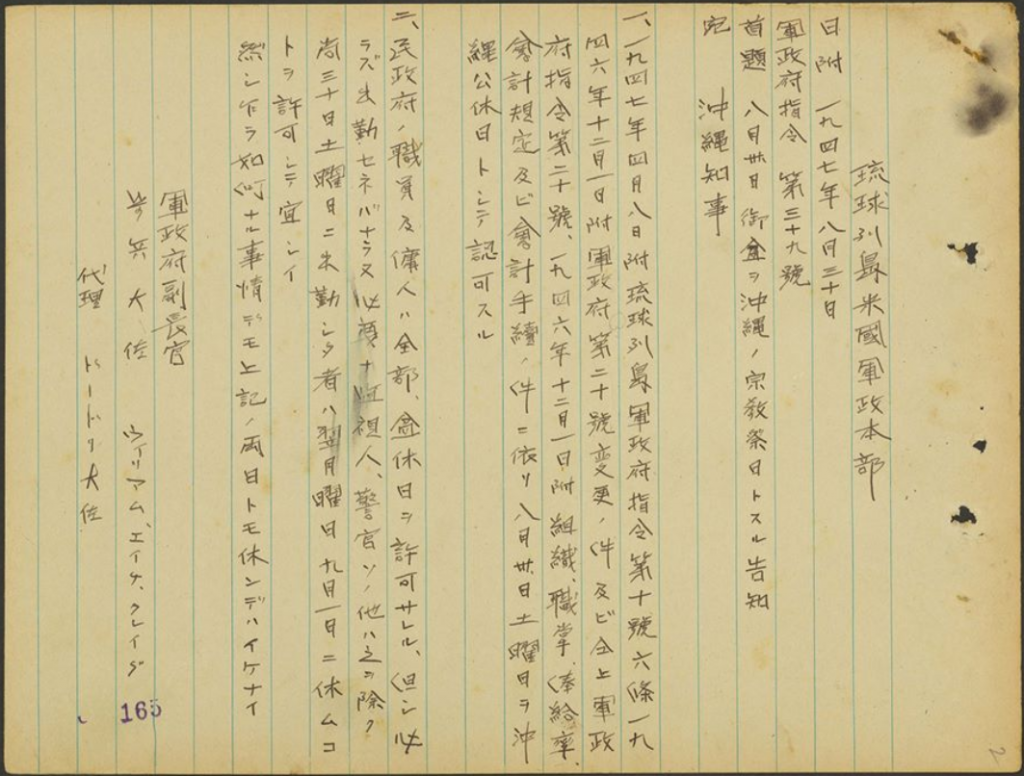 琉球列島米國軍政本部
日附 一九四七年八月三十日
軍政府指令 第三十九號
首題 八月卅日御盆ヲ沖縄ノ宗教祭日トスル告知
宛 沖縄知事
一、一九四七年四月八日附琉球列島軍政府指令第十號六條一九
四六年十二月一日附軍政府第二十號変更ノ件及ビ仝上軍政
府指令第二十號、一九四六年十二月一日附組織、職掌、俸給率、
會計規定及ビ會計手續ノ件ニ依リ八月卅日土曜日ヲ沖
縄公休日トシテ認可スル
二、民政府ノ職員及傭人ハ全部、盆休日ヲ許可サレル、但シ必
ラズ出勤セネバナラヌ必要ナ監視人、警官ソノ他ハ之ヲ除ク
尚三十日土曜日ニ出勤シタ者ハ翌月曜日九月一日ニ休ムコ
トヲ許可シテ宜シイ
然シ乍ラ如何ナル事情デモ上記ノ両日トモ休ンデハイケナイ
軍政府副長官
歩兵大佐 ウイリアム、エイチ、クレイグ
代理 トードリ大佐
165
2